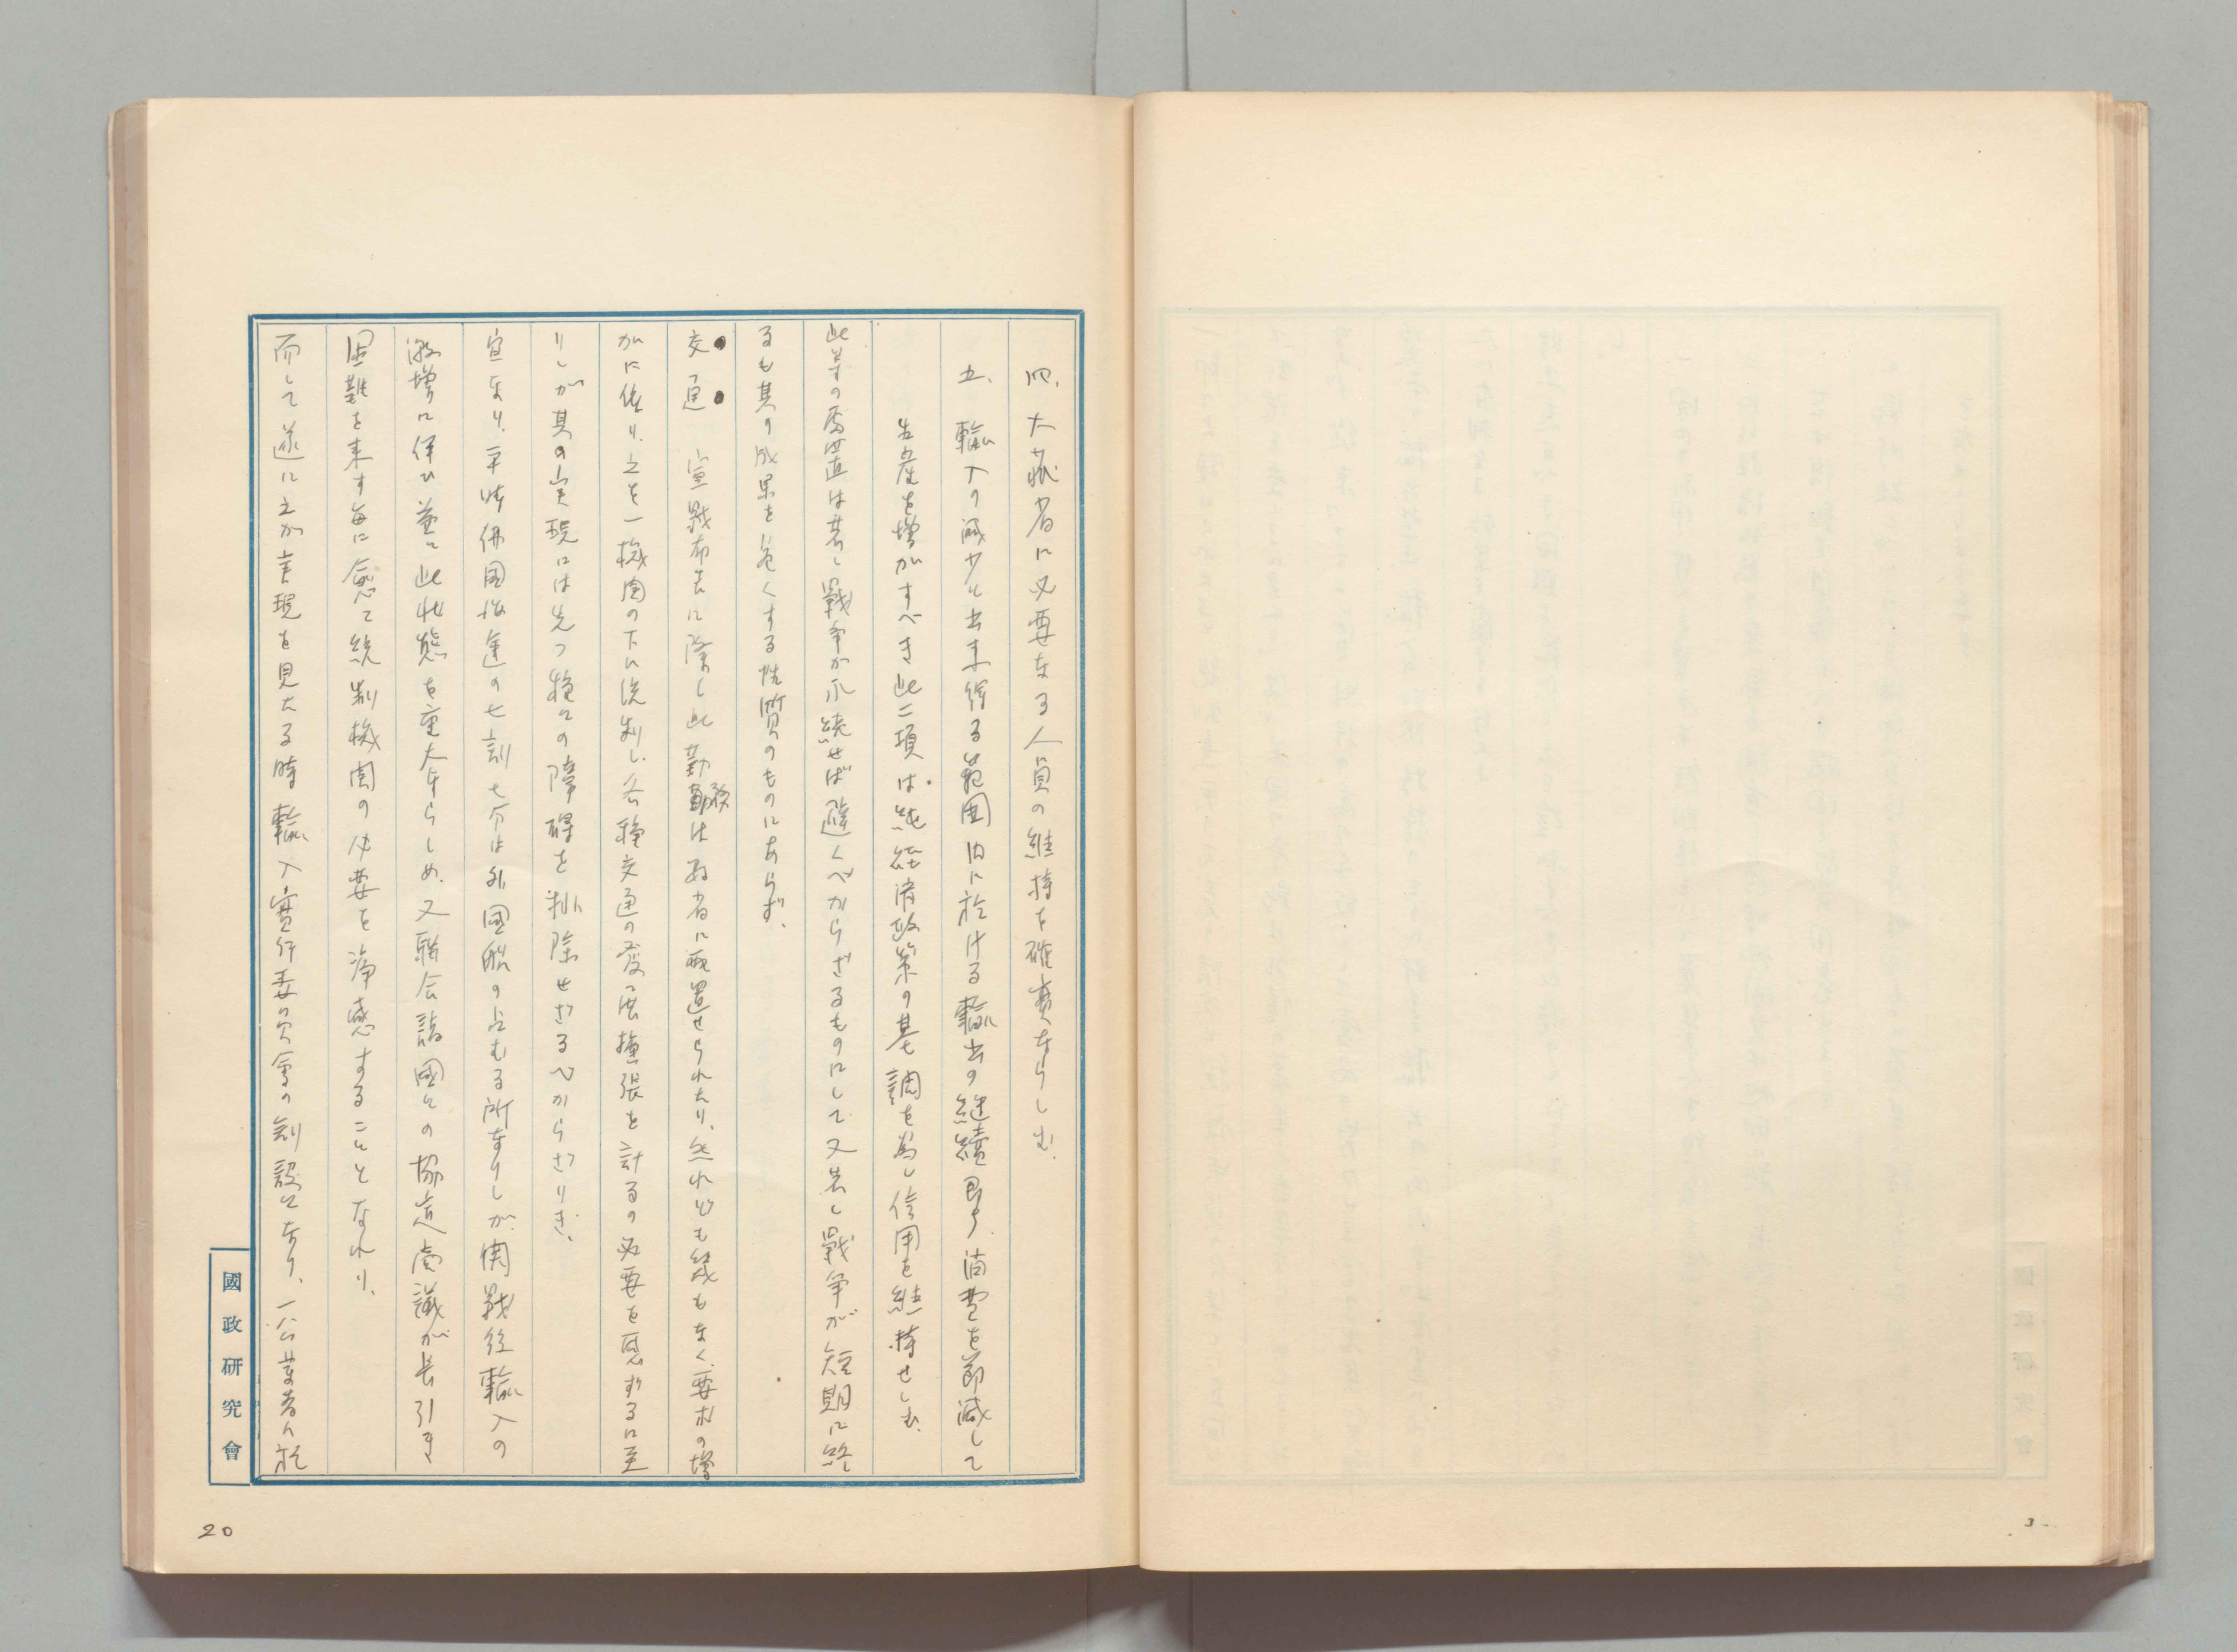 四、大藏省に必要なる人員の維持を確實ならしむ、
五、輸入の減少と出来得る範囲内に於ける輸出の継續即ち消費を節減して
生産を増加すべき此二項は純経済政策の基調を為し信用を維持せしむ、
此等の處置は若し戰爭が永続せば避くべからざるものにして又若し戰爭が短期に終
るも其の成果を危くする性質のものにあらず、
交通 宣戰布告に際し此勤務は各省に配置せられたり、然れども幾もなく要求の増
加に依り、之を一機関の下に統制し、各種交通の発展擴張を計るの必要を感ずるに至
りしが其の実現には先づ種々の障碍を排除せざるべからざりき、
宣なり、平時佛国後進の七割七分は外國船の占むる所なりしが、開戰後輸入の
激増に伴ひ益々此状態を重大ならしめ、又聯合諸國との協定商議が長引き
困難を来す毎に愈々統制機関の必要を痛感することとなれり、
而して遂に之が実現を見たる時輸入實行委員會の創設となり、公業者に於
國政研究會
20